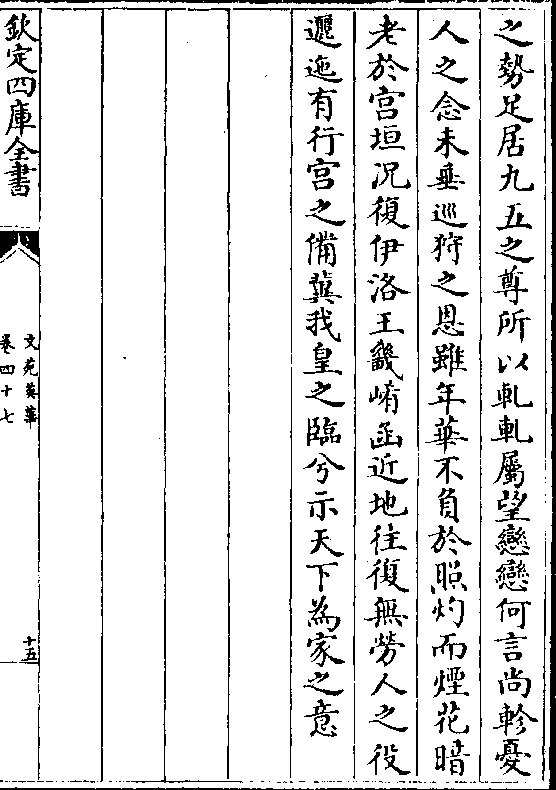 之勢足居九五之尊所以乹乹屬望戀戀何言尚軫憂
人之念未垂巡狩之恩雖年華不負於照灼而煙花暗
老於宮垣況復伊洛王畿崤函近地往復無勞人之役
邐迤有行宮之備冀我皇之臨兮示天下為家之意
欽定四庫全書
文苑英華
卷四十七
十五